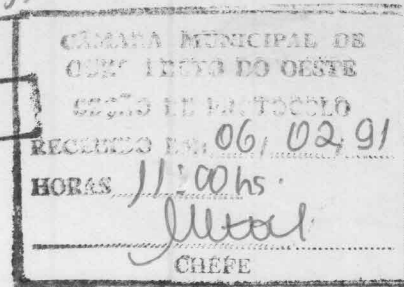 CÂMARA MUNICIPAL DE
DO OESTE
SEÇÃO DE PROTOCOLO
RECEBIDO EM: 06/02/91
HORAS 11:00 hs.
CHEFE